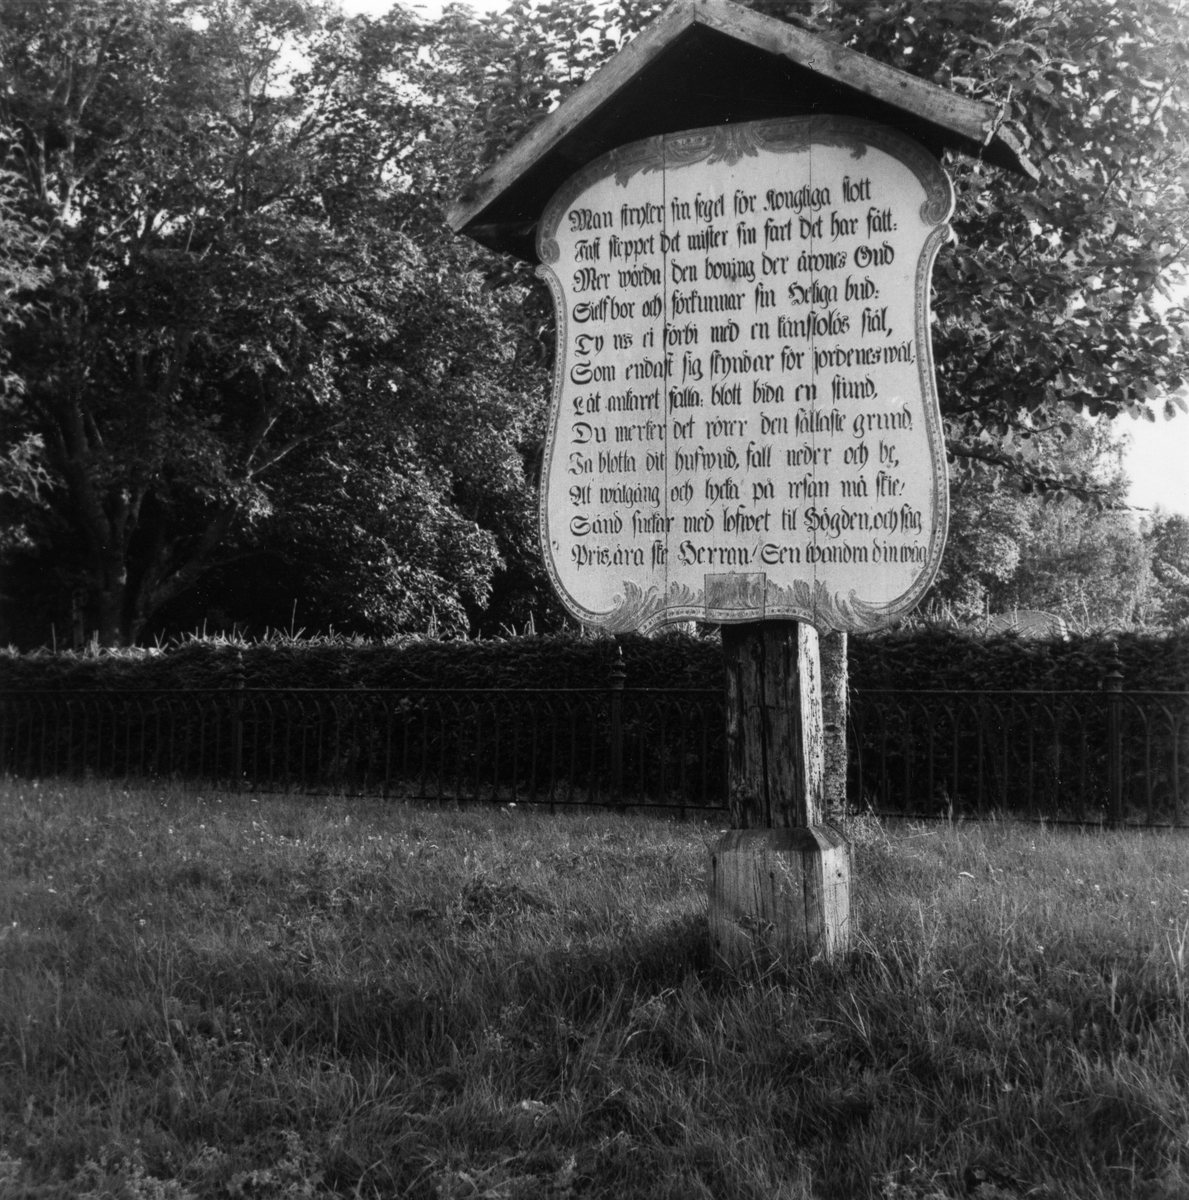 Man stryker sin segel för Kongliga slott
Fast skeppet det mister sin fart det har fått:
Mer wörda den boning der ärones Gud
Sielf bor och förkunnar sin Heliga bud:
Ty res ei förbi med en känslolös siäl,
Som endast sig skyndar för jordenes wäl;
Låt ankaret falla: blott bida en stund,
Du merker det rörer den sållaste grund.
Ja blotta dit hufwud, fall neder och be,
At wälgång och lycka på resan må skie!
Sänd suckar med lofwet til Högden, och säg
Pris, ära ske Herran! Sen wandra din wäg